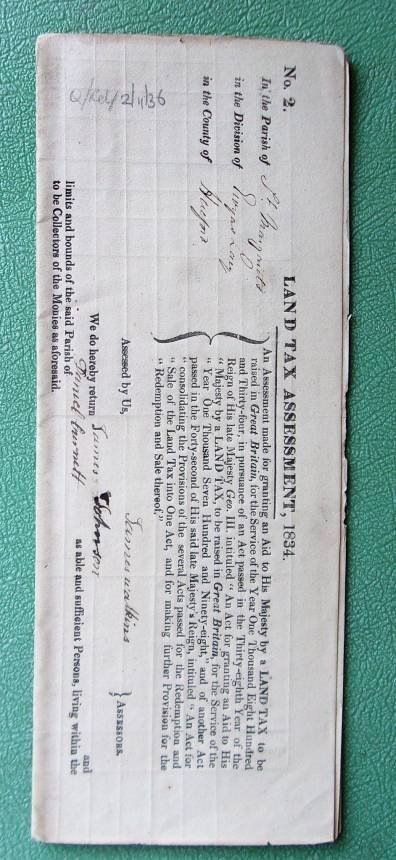 No. 2.
LAND TAX ASSESSMENT, 1834.
In the Parish of St.
in the Division of
in the County of
An Assessment made for granting an Aid to His Majesty by a LAND TAX to be
raised in Great Britain, for the Service of the Year One Thousand Eight Hundred
and Thirty-four, in pursuance of an Act passed in the Thirty-eighth Year of the
Reign of His late Majesty Geo. III. intituled “ An Act for granting an Aid to His
“ Majesty by a LAND TAX, to be raised in Great Britain, for the Service of the
“ Year One Thousand Seven Hundred and Ninety-eight,” and of another Act
passed in the Forty-second of His said late Majesty's Reign, intituled “ An Act for
“ consolidating the Provisions of the several Acts passed for the Redemption and
“ Sale of the Land Tax into One Act, and for making further Provision for the
“ Redemption and Sale thereof.”
Q/Rel/2/11/36
Assessed by Us,
James watkins
ASSESSORS.
We do hereby return James Johnson and
as able and sufficient Persons, living within the
limits and bounds of the said Parish of
to be Collectors of the Monies as aforesaid.